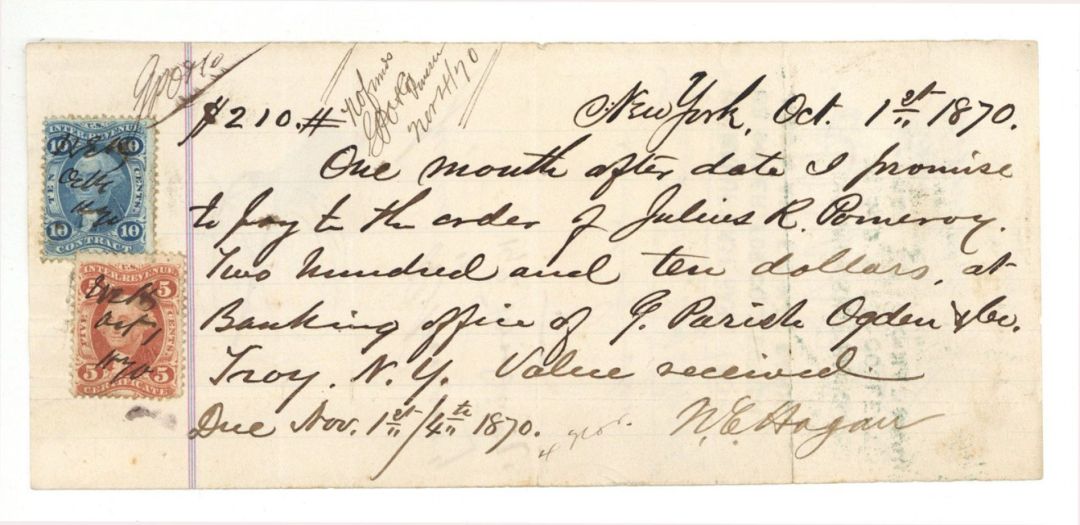 $210.# New York, Oct. 1st 1870.
One month after date I promise
to pay to the order of Julius R. Pomeroy.
Two hundred and ten dollars, at
Banking office of G. Parish Ogden & Co.
Troy. N. Y. Value received
Due Nov. 1st/4th 1870.
N. E. Hagan
Nov 4/70
U.S.
INTER. REVENUE
10 10
TEN CENTS
Oct 1
1870
10 10
CONTRACT
U.S.
INTER. REVENUE
5 5
FIVE CENTS
Oct 1
1870
5 5
CERTIFICATE